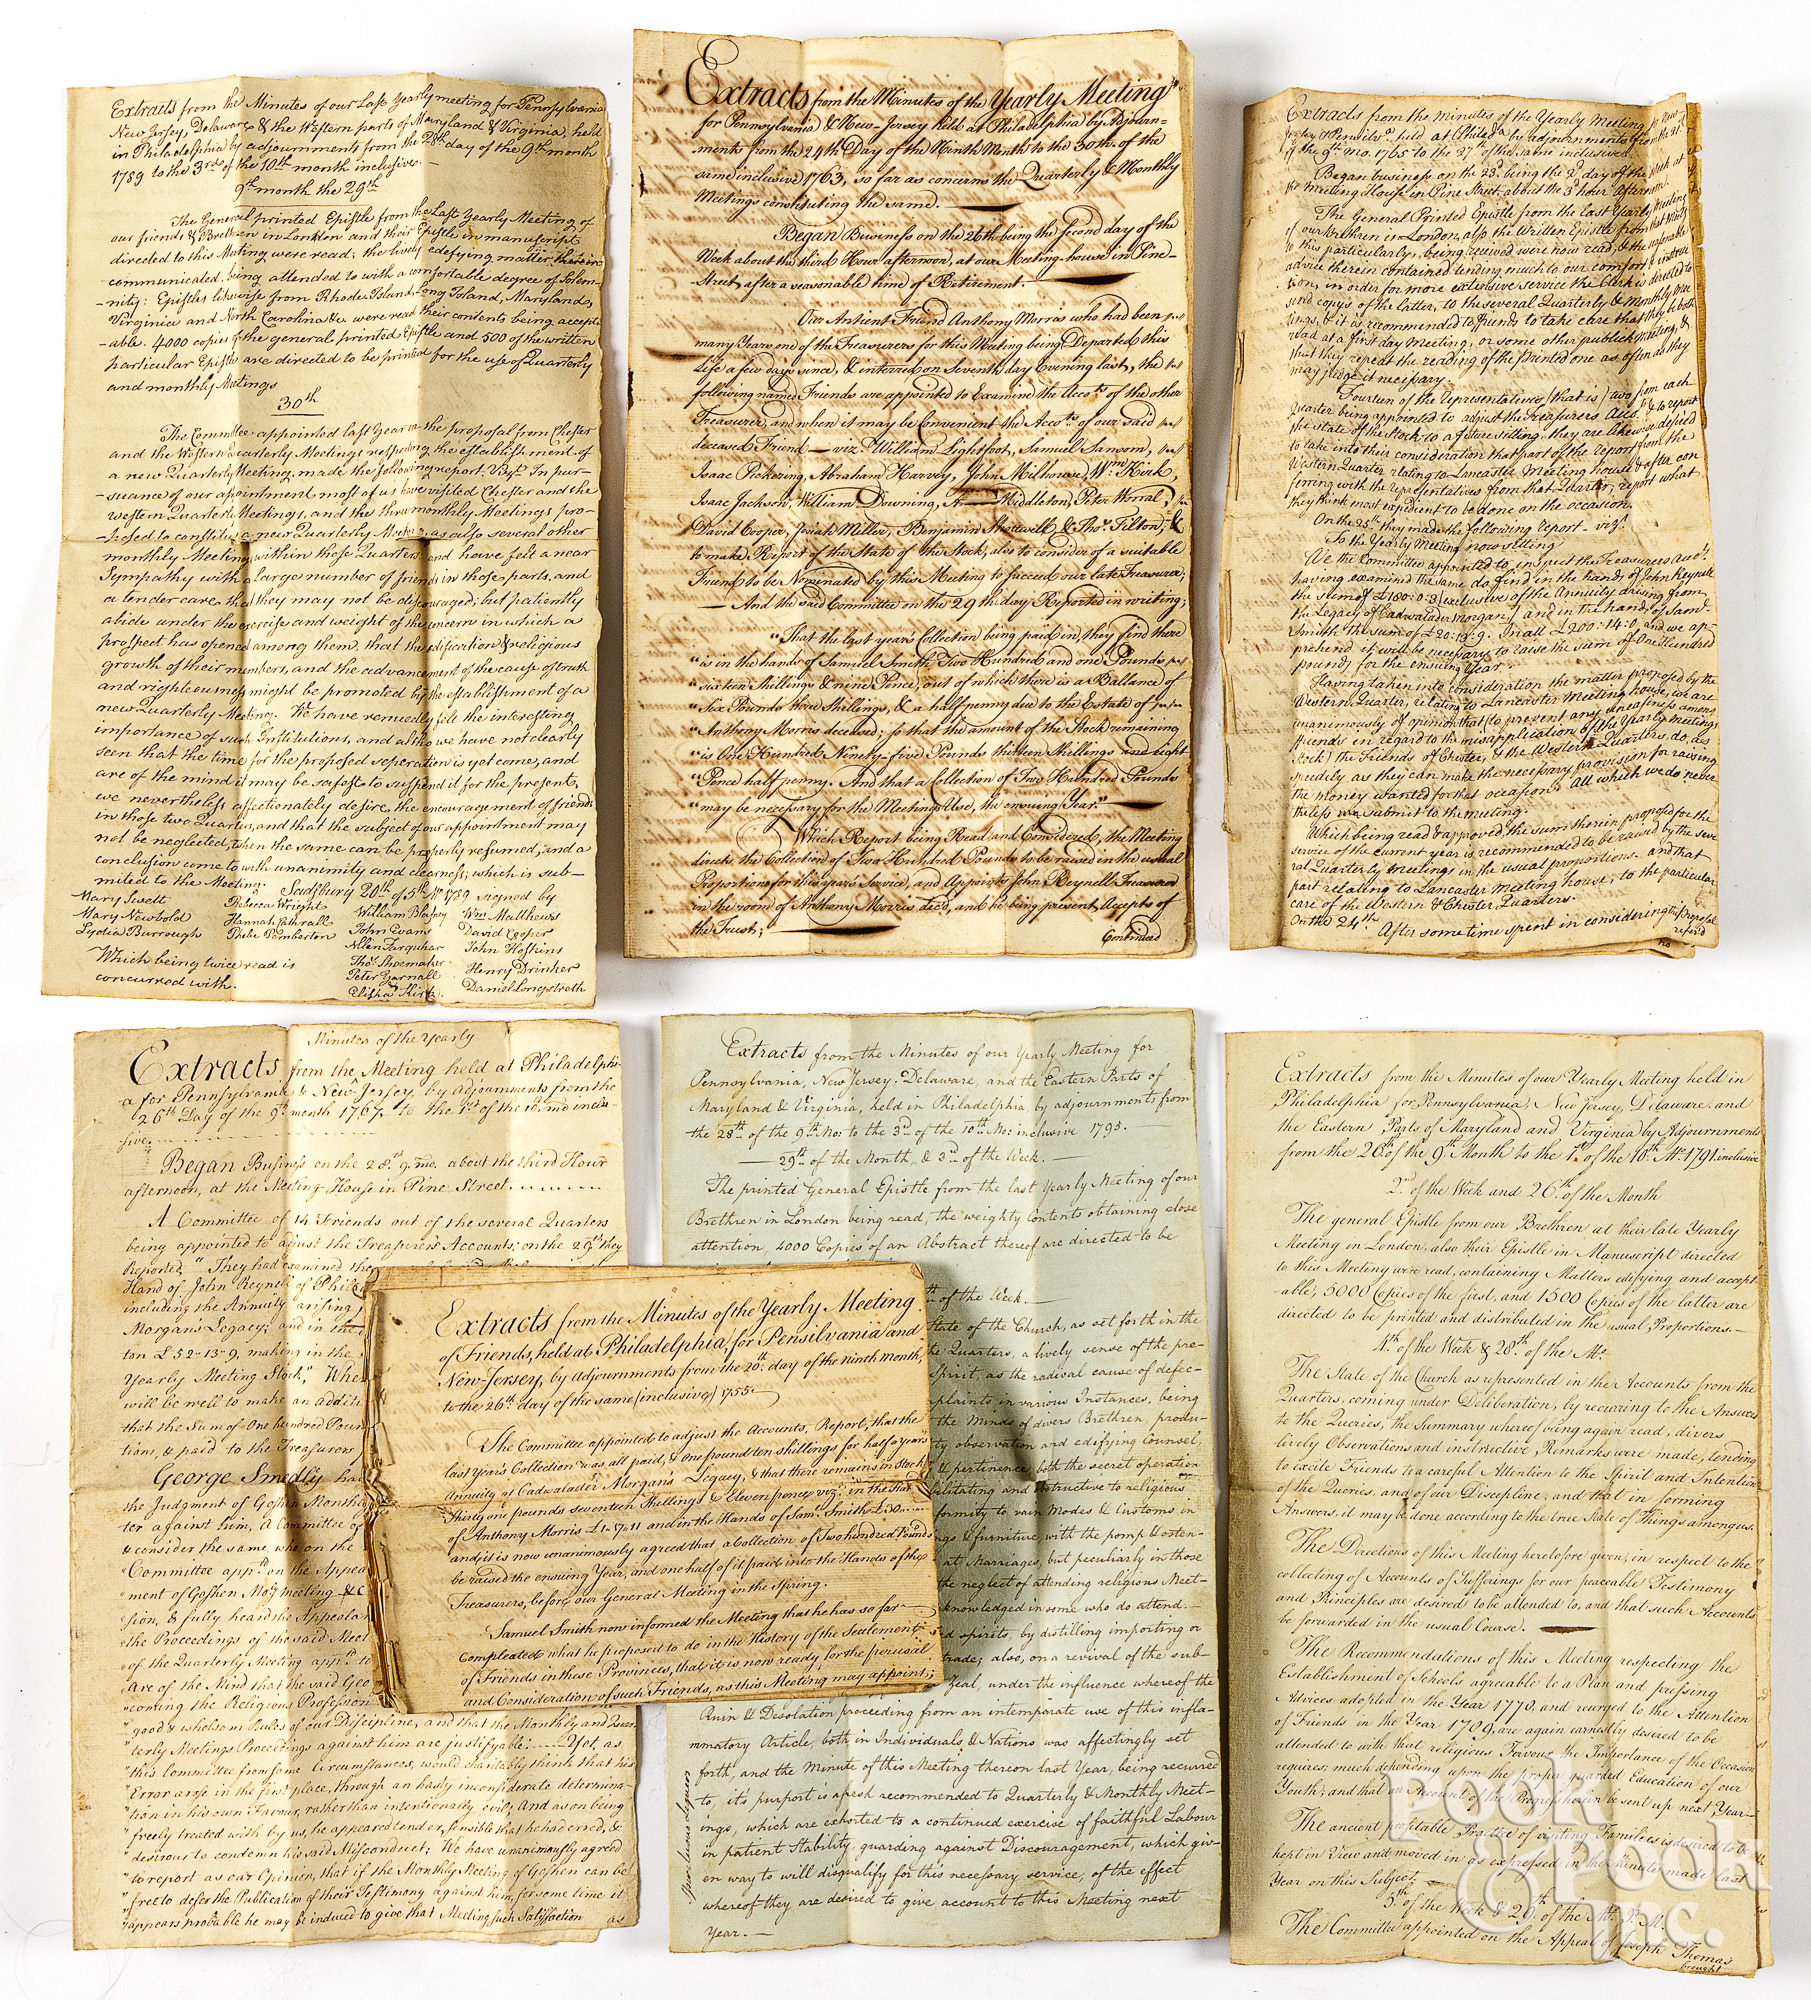 Extracts from the Minutes of our Last Yearly meeting for Pennsylvania
New Jersey, Delaware & the Western parts of Maryland & Virginia, held
in Philadelphia by adjournments from the 28th day of the 9th month
1789 to the 3rd of the 10th month inclusive.
9th month the 29th
The General printed Epistle from the Last Yearly Meeting of
our friends & Brethren in London and their Epistle in manuscript
directed to this Meeting were read; the lively edifying matter therein
communicated being attended to with a comfortable degree of Solem-
-nity: Epistles likewise from Rhode Island, Long Island, Maryland,
Virginia and North Carolina &c were read their contents being accept-
-able. 4000 copies of the general printed Epistle and 500 of the written
particular Epistle are directed to be printed for the use of Quarterly
and monthly Meetings
30th
The Committee appointed last Year on the proposal from Chester
and the Western Quarterly Meetings respecting the establishment of
a new Quarterly Meeting, made the following report. Vizt. In pur-
-suance of our appointment most of us have visited Chester and the
western Quarterly Meetings, and the three monthly Meetings pro-
-posed to constitute a new Quarterly Meeting, as also several other
monthly Meetings within those Quarters, and have felt a near
Sympathy with a large number of friends in those parts, and
a tender care that they may not be discouraged; but patiently
abide under the exercise and weight of the concern in which a
prospect has opened among them, that the edification & religious
growth of their members, and the advancement of the cause of truth
and righteousness might be promoted by the establishment of a
new Quarterly Meeting. We have renuedly felt the interesting
importance of such Institutions, and altho we have not clearly
seen that the time for the proposed seperation is yet come, and
are of the mind it may be safest to suspend it for the present,
we nevertheless affectionately desire the encouragement of friends
in those two Quarters, and that the subject of our appointment may
not be neglected, when the same can be properly resumed, and a
conclusion come to with unanimity and clearness; which is sub-
-mited to the Meeting. Sadsbury 20th of 5th Mo 1789 signed by
Mary Swett Rebecca Wright William Blakey Wm Matthews
Mary Newbold Hannah Cathrall John Evans David Cooper
Lydia Burrough Phebe Pemberton Allen Farquhar John Hoskins
Thos. Shoemaker Henry Drinker
Which being twice read is Peter Yarnall Daniel Longstreth
concurred with. Elisha Kirk.
Extracts from the Minutes of the Yearly Meeting
for Pennsylvania & New-Jersey held at Philadelphia by Adjourn-
ments from the 24th Day of the Ninth Month to the 30th of the
same inclusive 1763, so far as concerns the Quarterly & Monthly
Meetings constituting the same.
Began Business on the 26th being the second day of the
Week about the third Hour afternoon, at our Meeting-house in Pine-
Street, after a seasonable time of Retirement.
Our Antient Friend Anthony Morris who had been
many Years one of the Treasurers for this Meeting being Departed this
Life a few days since, & interred on Seventh day Evening last, the
following named Friends are appointed to Examine the Accots of the other
Treasurer, and when it may be Convenient the Accots of our said
deceased Friend — vizt. William Lightfoot, Samuel Sansom,
Isaac Pickering, Abraham Harvey, John Milhouse, Wm. Kirk,
Isaac Jackson, William Downing, Middleton, Peter Worral,
David Cooper, Josiah Miller, Benjamin Shotwell & Thos. Tilton, &
to make Report of the State of the Stock, also to consider of a suitable
Friend to be Nominated by this Meeting to succeed our late Treasurer;
— And the said Committee on the 29th day Reported in writing;
"That the last years Collection being paid in, they find there
"is in the hands of Samuel Smith Two Hundred and one Pounds
"sixteen Shillings & nine Pence, out of which there is a Ballance of
"Six Pounds three Shillings, & a half penny due to the Estate of
"Anthony Morris deceased; so that the amount of the Stock remaining
"is One Hundred Ninety-five Pounds thirteen Shillings and eight
"Pence half penny. And that a Collection of Two Hundred Pounds
"may be necessary for the Meetings Use, the ensuing Year."
Which Report being Read and Considered, the Meeting
directs the Collection of Two Hundred Pounds to be raised in the usual
Proportions for this year's Service, and Appoints John Reynell Treasurer
in the room of Anthony Morris Deced, and he being present, Accepts of
the Trust;
Continued
Extracts from the minutes of the Yearly Meeting for New
Jersey & Pensilva held at Philada by adjournments from the 21st
of the 9th mo. 1765 to the 27th of the same inclusive.
Began business on the 23d being the 2d day of the week at
the meeting House in Pine Street about the 3d hour afternoon.
The General Printed Epistle from the last Yearly Meeting
of our brethren in London, also the Written Epistle from that Meeting
to this particularly, being received were now read, & the seasonable
advice therein contained tending much to our comfort & instruc-
tion, in order for more extensive service the Clerk is directed to
send copys of the latter, to the several Quarterly & monthly Mee-
tings, & it is recommended to friends to take care that they be both
read at a first day meeting, or some other publick meeting, &
that they repeat the reading of the printed one as often as they
may judge it necessary
Fourteen of the Representatives (that is) two from each
Quarter being appointed to adjust the Treasurers Accots & to report
the state of the Stock to a future sitting, they are likewise desired
to take into their consideration that part of the Report from the
Western Quarter relating to Lancaster Meeting house & after con
ferring with the representatives from that Quarter, report what
they think most expedient to be done on the occasion.
On the 25th they made the following report – vizt.
To the Yearly Meeting now sitting
We the Committee appointed to inspect the Treasurers Accots
having examined the same do find in the hands of John Reynell
the sum of £180:0:3 (exclusive of the Annuity arising from
the Legacy of Cadwalader Morgan) and in the hands of Saml.
Smith the sum of £20:13:9. In all £200:14:0, and we ap-
prehend it will be necessary to raise the sum of One Hundred
pounds for the ensuing Year
Having taken into consideration the matter proposed by the
Western Quarter, relating to Lancaster Meeting house, we are
unanimously of opinion that (to prevent any uneasiness among
friends in regard to the misapplication of the Yearly Meetings
Stock) the Friends of Chester, & the Western Quarters do, as
speedely as they can make the necessary provision for raising
the money wanted for that occasion. All which we do never
theless submit to the meeting.
Which being read & approved, the sum therein proposed for the
service of the current year is recommended to be raised by the seve
ral Quarterly meetings in the usual proportions. and that
part relating to Lancaster meeting house, to the particular
care of the Western & Chester Quarters.
On the 24th. After some time spent in considering the Proposal
referd
no
Minutes of the Yearly
Extracts from the Meeting held at Philadelphi-
a for Pennsylvania & New Jersey, by Adjournments from the
26th Day of the 9th month 1767, to the 1st of the 10th mo inclu-
sive.
Began Business on the 28th 9 mo. about the third Hour
afternoon, at the Meeting-House in Pine Street.
A Committee of 14 Friends out of the several Quarters
being appointed to adjust the Treasurer's Accounts; on the 29th they
Reported, "They had examined the
Hand of John Reynell of Phila
including the Annuity arising
Morgan's Legacy; and in the
ton £52-13-9, making in the
Yearly Meeting Stock;" Whe
will be well to make an additi
that the Sum of One hundred Poun
tions, & paid to the Treasurers
George Smedly ha
the Judgment of Goshen Month
ter against him, A Committee of
& consider the same, who on the
"Committee appd. on the Appea
"ment of Goshen Moy meeting & C
"sion, & fully heard the Appela
"the Proceedings of the said Meet
"of the Quarterly Meeting appd. to
"are of the Mind that the said Geo
"coming the Religious Profession
"good & wholsome Rules of our Discipline, and that the Monthly and Quar-
"terly Meetings Proceedings against him are justifyable: Yet, as
"this Committee from some Circumstances, would charitably think that his
"Error arose in the first place, through an hasty inconsiderate determina-
"tion in his own Favour, rather than intentionally evil; And as on being
"freely treated with by us, he appeared tender, sensible that he had erred, &
"desirous to condemn his said Misconduct; We have unanimously agreed
"to report as our Opinion, that if the Monthly Meeting of Goshen can be
"free to defer the Publication of their Testimony against him, for some time it
"appears probable he may be induced to give that Meeting such Satisfaction as
Extracts from the Minutes of the Yearly Meeting
of Friends, held at Philadelphia, for Pensilvania and
New-Jersey, by adjournments from the 20th day of the ninth Month,
to the 26th day of the same (inclusive) 1755.
The Committee appointed to adjust the Accounts, Report, that the
last Year's Collection was all paid, & One pound ten shillings for half a years
Annuity of Cadwalader Morgan's Legacy, & that there remains in Stock
Thirty one pounds seventeen Shillings & Eleven pence, vizt. in the Hands
of Anthony Morris £1. 17. 11 and in the Hands of Saml. Smith £30.
and it is now unanimously agreed that a Collection of Two hundred Pounds
be raised the ensuing Year, and one half of it paid into the Hands of the
Treasurers, before our General Meeting in the Spring.
Samuel Smith now informed the Meeting that he has so far
Compleated what he proposed to do in the History of the Setlement
of Friends in these Provinces, that it is now ready for the perusal
and Consideration of such Friends, as this Meeting may appoint;
Extracts from the Minutes of our Yearly Meeting for
Pennsylvania, New Jersey, Delaware, and the Eastern Parts of
Maryland & Virginia, held in Philadelphia, by adjournments from
the 28th of the 9th Mo: to the 3d of the 10th Mo: inclusive 1795.
29th of the Month, & 3d of the Week.
The printed General Epistle from the last Yearly Meeting of our
Brethren in London being read, the weighty Contents obtaining close
attention, 4000 Copies of an Abstract thereof are directed to be
th of the Week
State of the Church, as set forth in the
the Quarters, a lively sense of the pre-
Spirit, as the radical cause of defec-
plaints in various Instances, being
the Minds of divers Brethren, produ-
ty, observation and edifying Counsel,
& pertinence, both the secret operation
bilitating and obstructive to religious
formity to vain Modes & Customs in
gs & furniture, with the pomp & osten-
at Marriages, but peculiarly in those
the neglect of attending religious Meet-
knowledged in some who do attend.
d spirits, by distilling importing or
trade; also, on a revival of the sub-
Zeal, under the influence whereof the
Ruin & Desolation proceeding from an intemparate use of this infla-
mmatory Article, both in Individuals & Nations was affectingly set
forth, and the Minute of this Meeting thereon last Year, being recurred
to, it's purport is afresh recommended to Quarterly & Monthly Meet-
ings, which are exhorted to a continued exercise of faithful Labour
in patient Stability, guarding against Discouragement, which giv-
en way to will disqualify for this necessary service, of the effect
whereof they are desired to give account to this Meeting next
Year.
Spirituous liquors
Extracts from the Minutes of our Yearly Meeting held in
Philadelphia for Pennsylvania, New Jersey, Delaware and
the Eastern Parts of Maryland and Virginia by Adjournments
from the 26th of the 9th Month to the 1st of the 10th Mo. 1791. inclusive
2d of the Week and 26th of the Month
The general Epistle from our Brethren at their late Yearly
Meeting in London, also their Epistle in Manuscript directed
to this Meeting were read, containing Matters edifying and accept-
able, 5000 Copies of the first, and 1500 Copies of the latter are
directed to be printed and distributed in the usual Proportions.
4th of the Week & 28th of the Mo.
The State of the Church as represented in the Accounts from the
Quarters, coming under Deliberation, by recurring to the Answers
to the Queries, the Summary whereof being again read, divers
lively Observations and instructive Remarks were made, tending
to excite Friends to a careful Attention to the Spirit and Intention
of the Queries, and of our Discipline, and that in forming
Answers, it may be done according to the true State of Things among us.
The Directions of this Meeting heretofore given, in respect to the
collecting of Accounts of Sufferings for our peaceable Testimony
and Principles are desired to be attended to, and that such Accounts
be forwarded in the usual Course.
The Recommendations of this Meeting respecting the
Establishment of Schools agreeable to a Plan and pressing
Advices adopted in the Year 1778, and recurged to the Attention
of Friends in the Year 1789, are again earnestly desired to be
attended to with that religious Fervour the Importance of the Occasion
requires; much depending upon the proper guarded Education of our
Youth; and that an Account of the Progress herein be sent up next Year
The ancient profitable Practice of visiting Families is desired to be
kept in View and moved in as expressed in the Minute made last
Year on this Subject
5th of the Week & 29th of the Mo. P. M.
The Committee appointed on the Appeal of Joseph Thomas
brought
POOK
& POOK
INC.